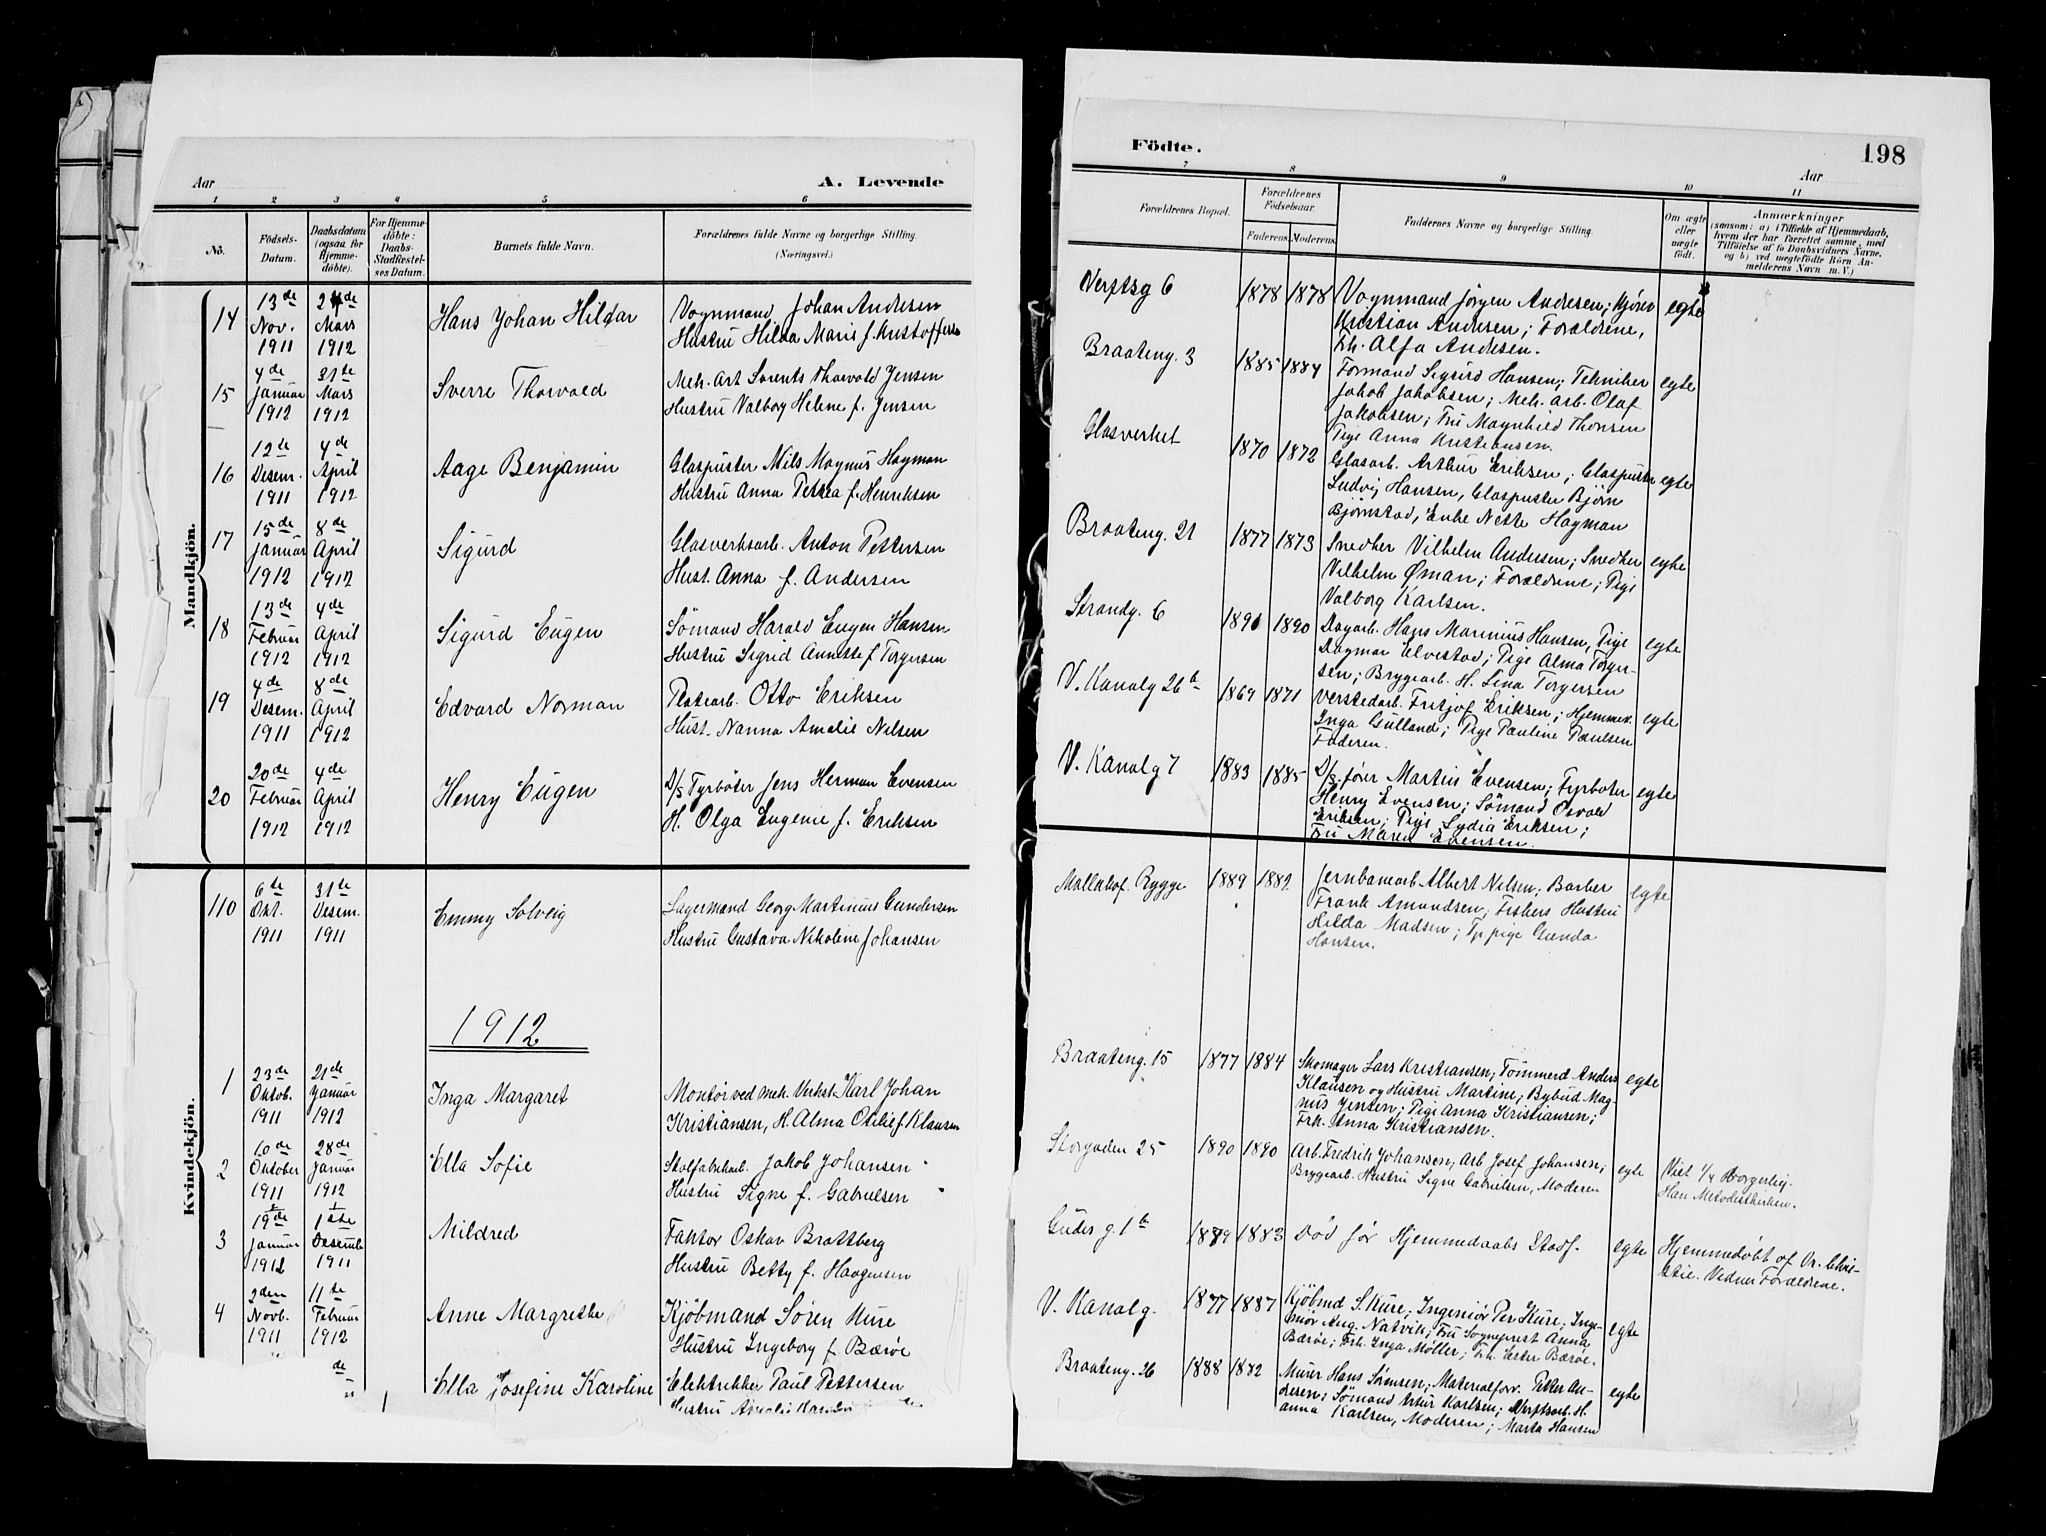 Aar
A. Levende
1 2 3 4 5 6
No.
Födsels-
Datum.
Daabsdatum
(ogsaa for
Hjemme-
döbte).
For Hjemme-
döbte:
Daabs-
Stadfæstel-
ses Datum.
Barnets fulde Navn.
Forældrenes fulde Navne og borgerlige Stilling.
(Næringsvei.)
Mandkjön.
14
13de
Nov.
1911
24de
Mars
1912
Hans Johan Hildar
Vognmand Johan Andersen
Hustru Hilda Marie f. Kristoffersen
15
4de
Januar
1912
31te
Mars
1912
Sverre Thorvald
Mek. Arb Lorents Thorvald Jensen
Hustru Valborg Helene f. Jensen
16
12te
Desem.
1911
4de
April
1912
Aage Benjamin
Glaspuster Nils Magnus Hagman
Hustru Anna Petrea f. Henriksen
17
15de
Januar
1912
8de
April
1912
Sigurd
Glasverksarb. Anton Pettersen
Hust. Anna f. Andersen
18
13de
Februar
1912
4de
April
1912
Sigurd Eugen
Sömand Harald Eugen Hansen
Hustru Sigrid Annette f Torgersen
19
4de
Desem.
1911
8de
April
1912
Edvard Norman
Platearb. Otto Eriksen
Hust. Nanna Amalie Nilsen
20
20de
Februar
1912
4de
April
1912
Henry Eugen
D/s Fyrböter Jens Herman Evensen
H. Olga Eugenie f. Eriksen
Kvindekjön.
110
6te
Okt.
1911
31te
Desem.
1911
Emmy Solveig
Lagermand Georg Martinius Gundersen
Hustru Gustava Nikoline Johansen
1912
1
23de
Oktob.
1911
21de
Januar
1912
Inga Margaret
Montör ved mek. Verkst. Karl Johan
Kristiansen, H. Alma Otilie f. Klausen
2
10de
Oktober
1911
28de
Januar
1912
Ella Sofie
Stolfabrikarb. Jakob Johansen
Hustru Signe f. Gabrielsen
3
19de
Januar
1912
1ste
Desemb
1911
Mildred
Faktor Oskar Brattberg
Hustru Betty f. Haagensen
4
2den
Novb.
1911
11te
Februar
1912
Anne Margrethe
Kjöbmand Sören Kure
Hustru Ingeborg f. Bærøe
de
Ella Josefine Karoline
Elektrikker Paul Pettersen
Hustru Amalie
Födte.
198
Aar
7 8 9 10 11
Forældrenes Bopæl.
Forældrenes
Födselsaar.
Faderens. Moderens.
Faddernes Navne og borgerlige Stilling.
Om ægte
eller
uægte
født.
Anmærkninger
(saasom: a) i Tilfælde af Hjemmedaab,
hvem der har forrettet samme, med
Tilföielse af to Daabsvidners Navne,
og b) ved uægtefödte Börn An-
melderens Navn m. V.)
Verftsg 6
1878 1878
Vognmand Jörgen Andersen; Kjörer
Kristian Andersen; Forældrene,
Frk. Alfa Andersen.
egte
Braateng. 3
1885 1884
Formand Sigurd Hansen; Tekniker
Jakob Jakobsen; Mek. arb. Olaf
Jakobsen; Fru Magnhild Thorsen
Pige Anna Kristiansen.
egte
Glasverket
1870 1872
Glasarb. Arthur Eriksen; Glaspuster
Ludvig Hansen, Glaspuster Björn
Björnstad, Enke Nette Hagman
egte
Braateng. 21
1877 1873
Snedker Vilhelm Andersen; Snedker
Vilhelm Øman; Forældrene; Pige
Valborg Karlsen.
egte
Strandg. 6
1891 1890
Dagarb. Hans Marinius Hansen, Pige
Dagmar Elvestad; Pige Alma Torger-
sen; Bryggearb. H. Lina Torgersen
egte
V. Kanalg 26b
1869 1871
Verstedarb. Fritjof Eriksen; Hjemmev.
Inga Gulland; Pige Pauline Paulsen
Faderen.
egte
V. Kanalg 7
1883 1885
D/s. förer Martin Evensen; Fyrböter
Henry Evensen; Sömand Osvald
Eriksen; Pige Lydia Eriksen;
Fru Maren Evensen.
egte
Møllehof. Rygge
1889 1882
Jernbanearb Albert Nilsen; Barber
Frank Amundsen; Fiskers Hustru
Hilda Madsen; Tj. pige Gunda
Hansen.
egte
Braateng. 15
1877 1884
Skomager Lars Kristiansen; Tömmerd Anders
Klausen og Hustru Martine; Bybud Mag-
nus Jensen; Pige Anna Kristiansen;
Frk. Anna Kristiansen.
egte
Storgaden 25
1890 1890
Arb. Fredrik Johansen; Arb Josef Johansen;
Bryggearb. Hustru Signe Gabrielsen, Moderen
egte
Viet 1/4 Borgerlig.
Han Metodistkirken.
Gudes g. 1b
1879 1883
Död før Hjemmedaabs Stadf.
egte
Hjemmedöbt af Dr. Chris-
tie. Vidner Forældrene.
V. Kanalg.
1877 1887
Kjöbmd S. Kure; Ingeniör Per Kure; Inge-
niör Aug. Natvik; Fru Sogneprest Anna
Bærøe; Frk. Inga Möller; Frk. Ester Bærøe.
egte
Braateng. 26
1888 1882
Murer Hans Sörensen; Materialforv. Petter An-
dersen; Sömand Artur Karlsen; Verftsarb. H.
Anna Karlsen, Moderen; Marta Hansen
egte